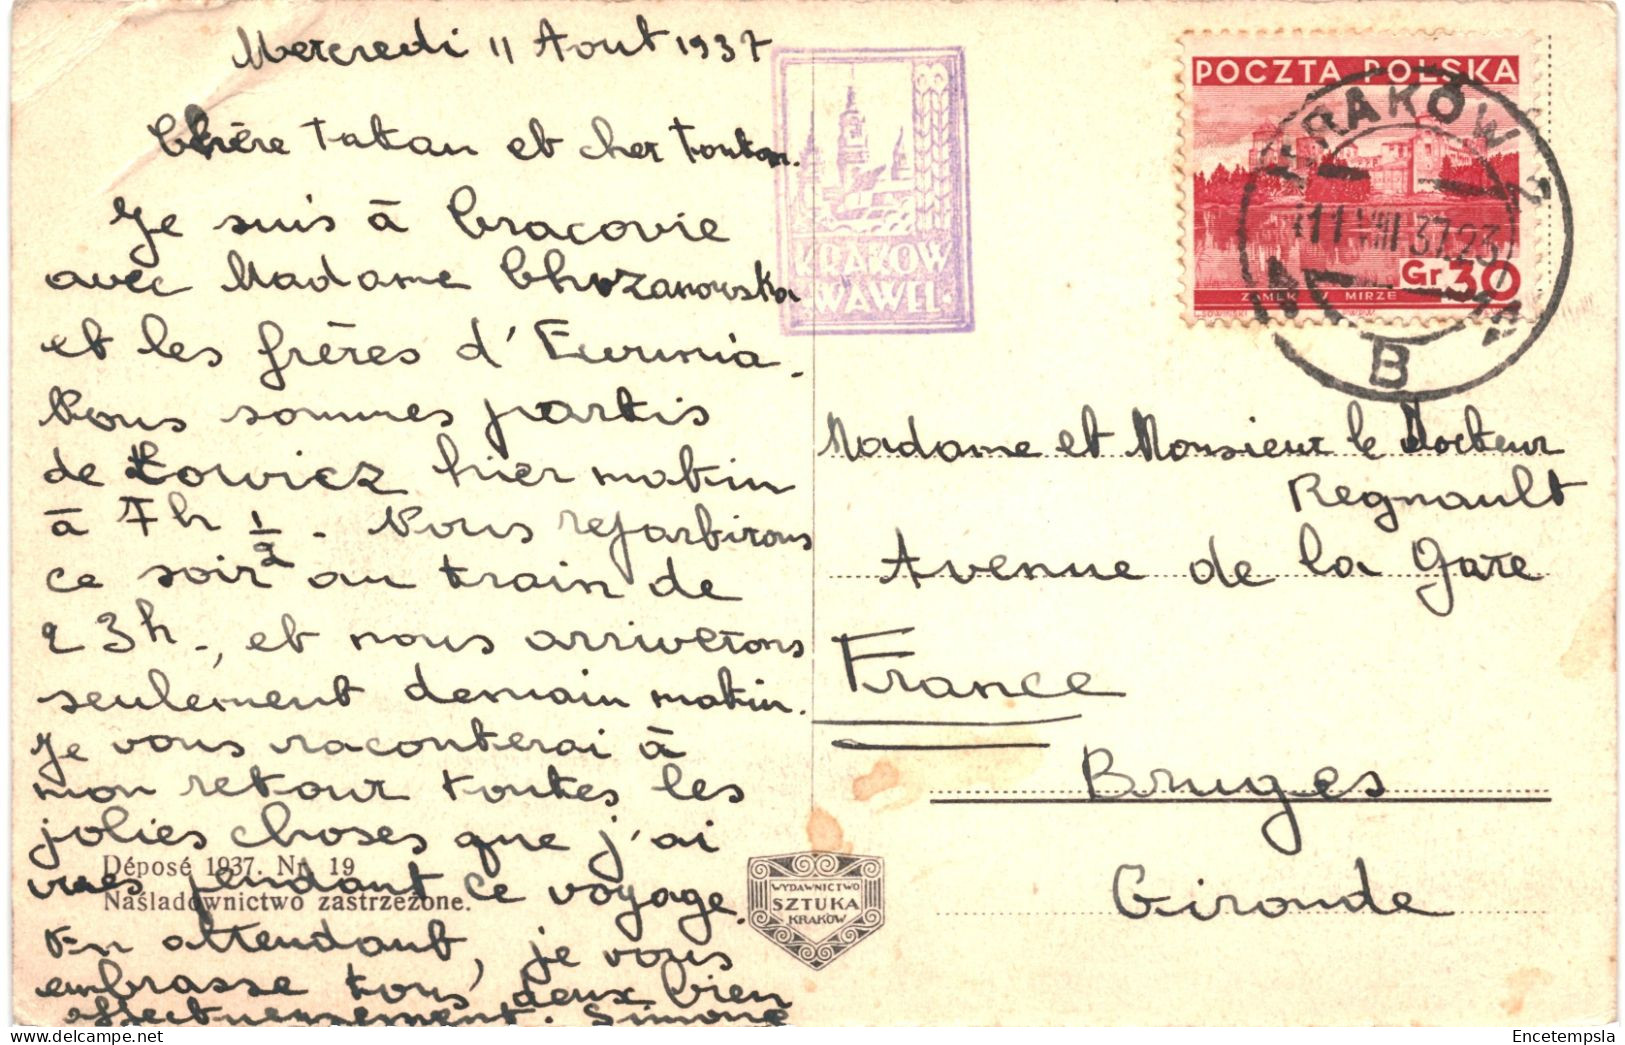 Mercredi 11 Aout 1937
Chère Tatan et cher Tonton.
Je suis à Cracovie
avec Madame Chrzanowska
et les frères d'
Nous sommes partis
de Lowicz hier matin
à 7h 1/2. Nous repartirons
ce soir au train de
23h., et nous arriverons
seulement demain matin.
Je vous raconterai à
mon retour toutes les
jolies choses que j'ai
vues pendant ce voyage.
En attendant, je vous
embrasse tous deux bien
affectueusement. Simone
Déposé 1937. Nr. 19
Naśladownictwo zastrzeżone.
KRAKÓW
WAWEL
WYDAWNICTWO
SZTUKA
KRAKÓW
POCZTA POLSKA
Gr. 30
ZAMEK MIRZE
KRAKÓW 2
11 VIII 37.23
B
Madame et Monsieur le Docteur
Regnault
Avenue de la Gare
France
Bruges
Gironde
Encetempsla